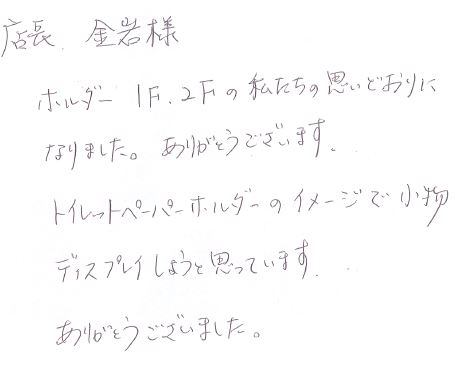 店長 金岩様
ホルダー 1F、2Fの私たちの思いどおりに
なりました。ありがとうございます。
トイレットペーパーホルダーのイメージで小物
ディスプレイしようと思っています。
ありがとうございました。